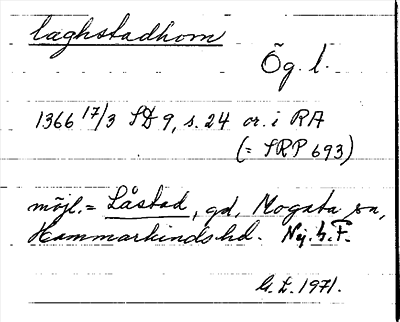 laghstadhom
Ög. l.
1366 17/3 SD 9, s. 24 or. i RA
(= SRP 693)
möjl. = Låstad, gd, Mogata sn,
Hammarkinds hd. Nej. G. F.
G. L. 1971.